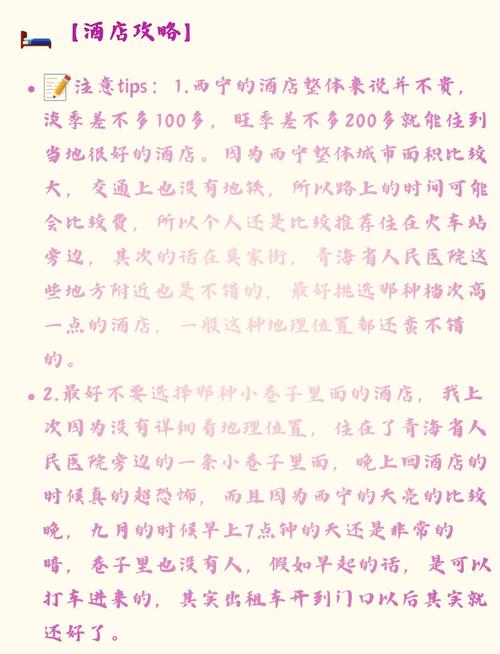 【酒店攻略】
注意tips：1.西宁的酒店整体来说并不贵，
淡季差不多100多，旺季差不多200多就能住到
当地很好的酒店。因为西宁整体城市面积比较
大，交通上也没有地铁，所以路上的时间可能
会比较费，所以个人还是比较推荐住在火车站
旁边，其次的话在莫家街，青海省人民医院这
些地方附近也是不错的，最好挑选那种档次高
一点的酒店，一般这种地理位置都还蛮不错
的。
2.最好不要选择那种小巷子里面的酒店，我上
次因为没有详细看地理位置，住在了青海省人
民医院旁边的一条小巷子里面，晚上回酒店的
时候真的超恐怖，而且因为西宁的天亮的比较
晚，九月的时候早上7点钟的天还是非常的
暗，巷子里也没有人，假如早起的话，是可以
打车进来的，其实出租车开到门口以后其实就
还好了。